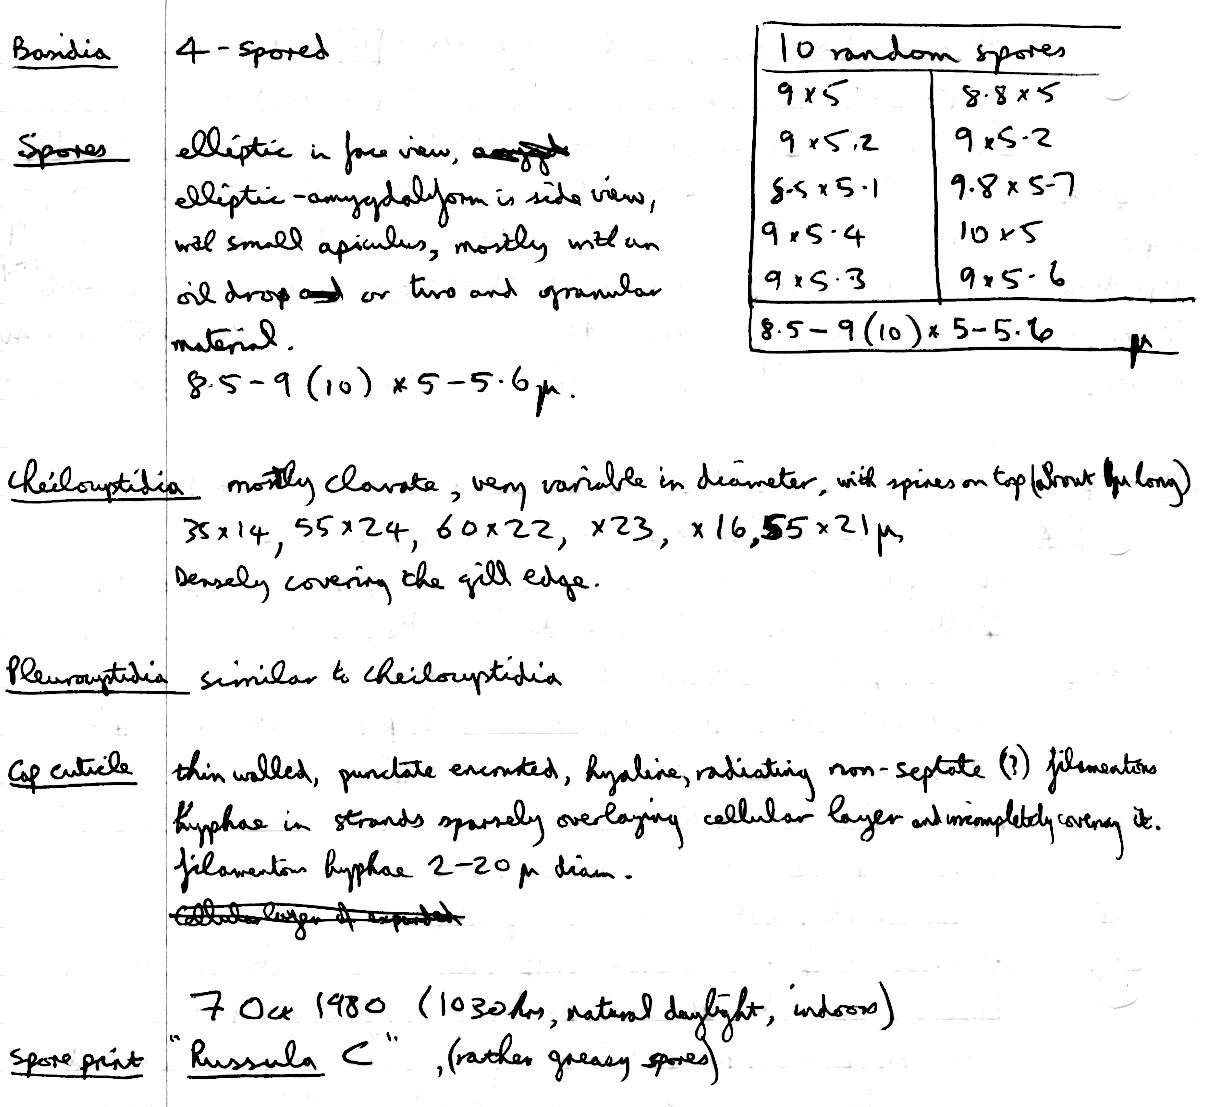 Basidia 4-spored
Spores elliptic in face view,
elliptic-amygdaliform is side view,
with small apiculus, mostly with an
oil drop or two and granular
material.
8.5-9 (10) × 5-5.6 µ.
10 random spores
9×5 8.8×5
9×5.2 9×5.2
8.5×5.1 9.8×5.7
9×5.4 10×5
9×5.3 9×5.6
8.5-9(10)×5-5.6 µ
Cheilocystidia mostly clavate, very variable in diameter, with spines on top (about long)
35×14, 55×24, 60×22, ×23, ×16, 55×21 µ
Densely covering the gill edge.
Pleurocystidia similar to cheilocystidia
Cap cuticle thin walled, punctate encrusted, hyaline, radiating non-septate (?) filamentous
hyphae in strands sparsely overlaying cellular layer and incompletely covering it.
filamentous hyphae 2-20 µ diam.
Cellular layer of expanded
7 Oct 1980 (1030 hrs, natural daylight, indoors)
Spore print "Russula C", (rather greasy spores)